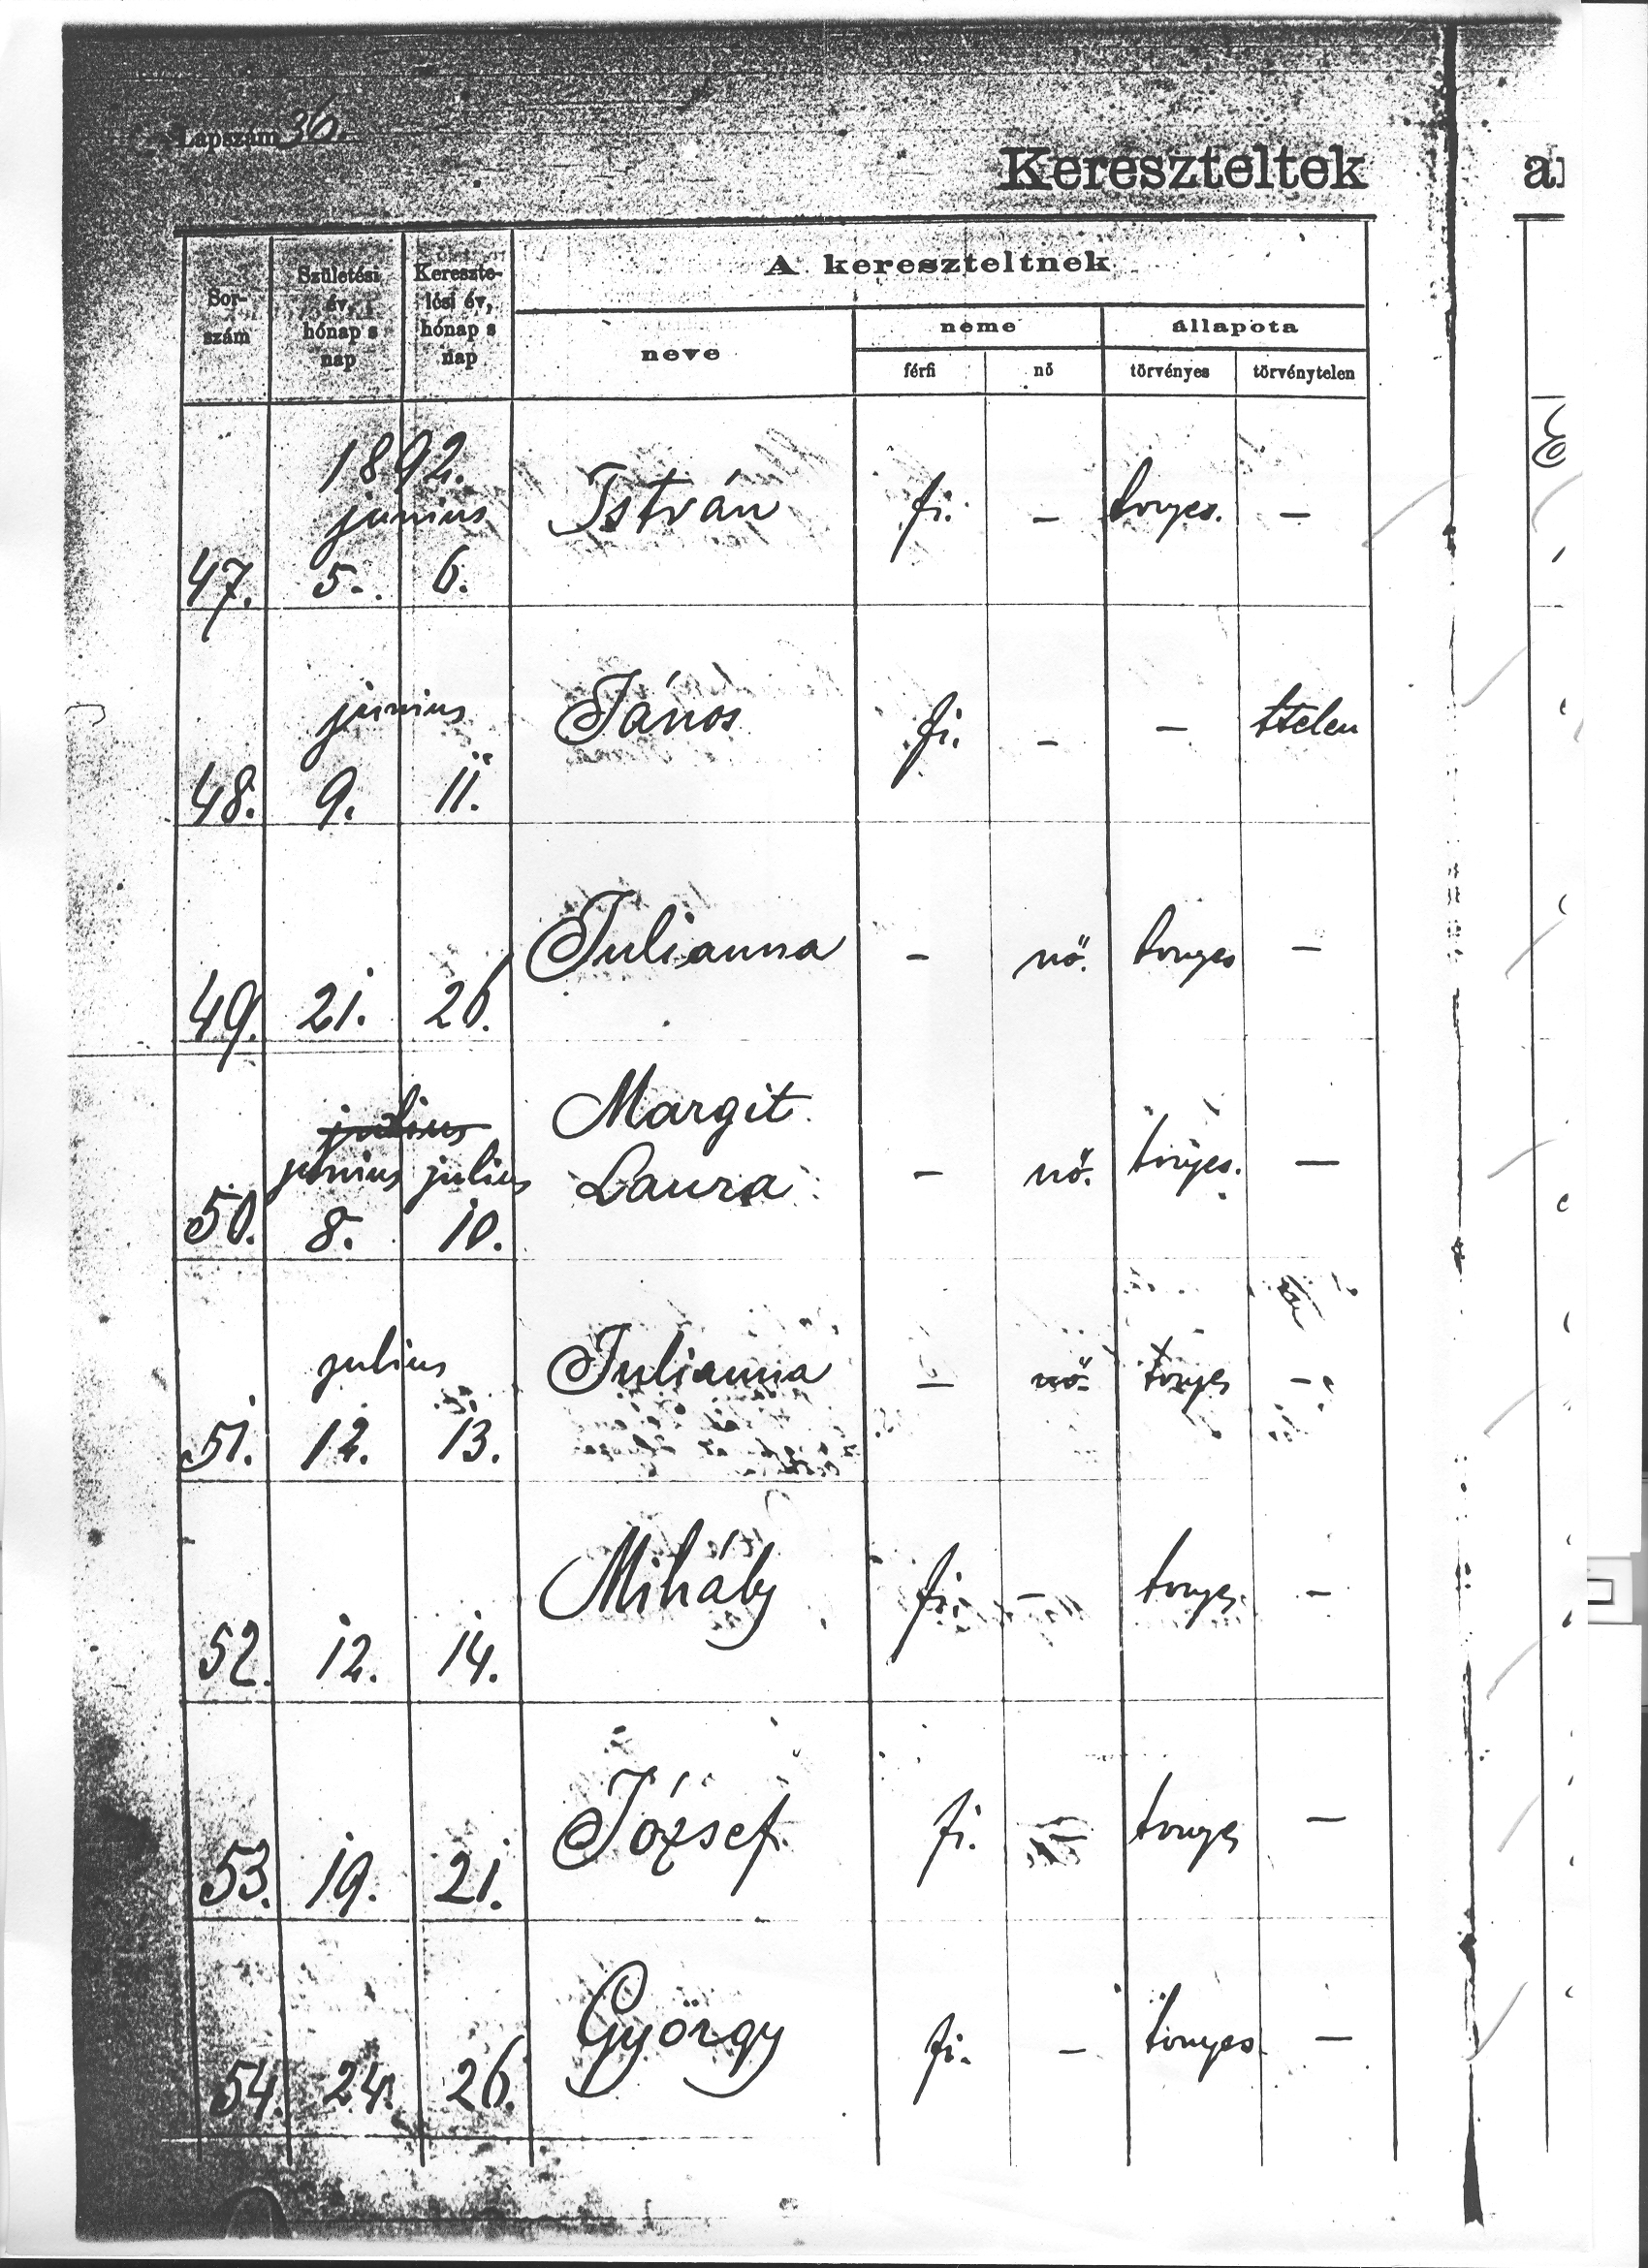 Lapszám 36.
Kereszteltek
Sor-
szám
Születési
év,
hónap s
nap
Kereszte-
lési év,
hónap s
nap
A kereszteltnek
neve
neme
állapota
férfi
nő
törvényes
törvénytelen
1892.
junius
47. 5. 6. István fi. – tvnyes. –
junius
48. 9. 11. János fi. – – ttelen
49. 21. 26. Julianna – nő. tvnyes –
julius
junius julius
50. 8. 10. Margit
Laura – nő. tvnyes. –
julius
51. 12. 13. Julianna – nő. tvnyes –
52. 12. 14. Mihály fi. – tvnyes. –
53. 19. 21. József fi. – tvnyes –
54. 24. 26. György fi. – tvnyes. –